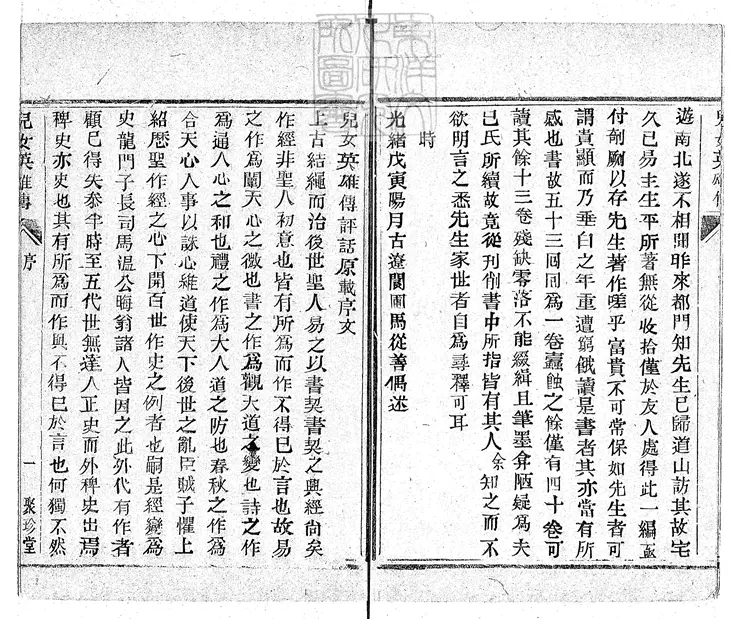 兒女英雄傳
遊南北遂不相聞昨來都門知先生已歸道山訪其故宅
久已易主生平所著無從收拾僅於友人處得此一編亟
付剞劂以存先生著作嗟乎富貴不可常保如先生者可
謂貴顯而乃垂白之年重遭窮餓讀是書者其亦當有所
感也書故五十三回回為一卷蠹蝕之餘僅有四十卷可
讀其餘十三卷殘缺零落不能綴緝且筆墨弇陋疑為夫
己氏所續故竟從刊削書中所指皆有其人余知之而不
欲明言之悉先生家世者自為尋繹可耳
時
光緒戊寅陽月古遼閬圃馬從善偶述
兒女英雄傳評話原載序文
上古結繩而治後世聖人易之以書契書契之興經尚矣
作經非聖人初意也皆有所為而作不得已於言也故易
之作為闡天心之微也書之作為觀大道之變也詩之作
為通人心之和也禮之作為大人道之防也春秋之作為
合天心人事以誅心維道使天下後世之亂臣賊子懼上
紹歷聖作經之心下開百世作史之例者也嗣是經變為
史龍門子長司馬溫公晦翁諸人皆因之此外代有作者
顧已得失參半時至五代世無達人正史而外稗史出焉
稗史亦史也其有所為而作與不得已於言也何獨不然
兒女英雄傳
序
一
聚珍堂